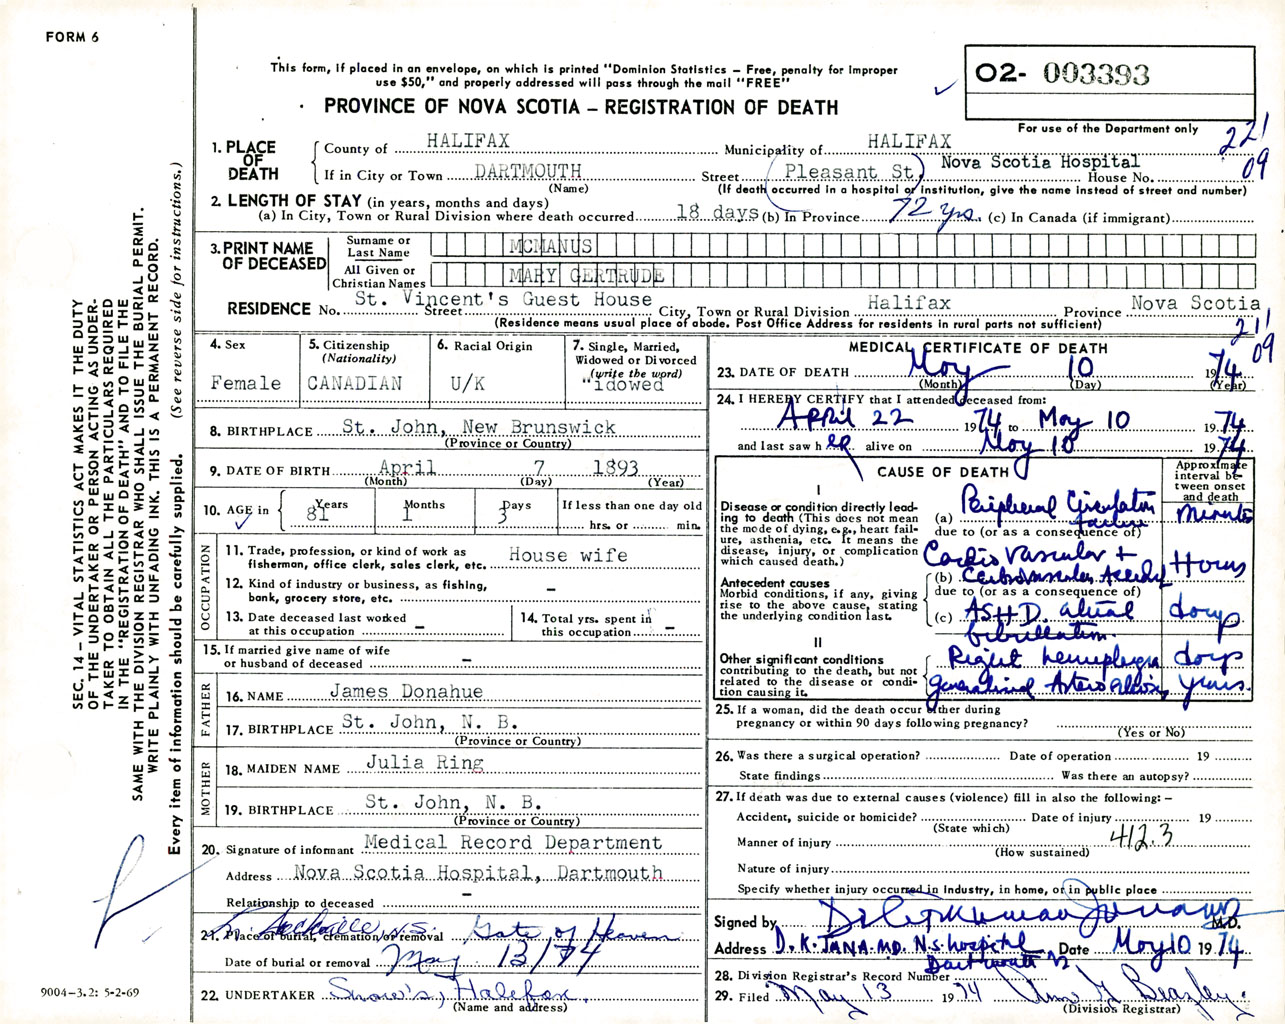 FORM 6
This form, if placed in an envelope, on which is printed "Dominion Statistics – Free, penalty for improper
use $50," and properly addressed will pass through the mail "FREE"
PROVINCE OF NOVA SCOTIA – REGISTRATION OF DEATH
02- 003393
For use of the Department only
221
09
1. PLACE OF DEATH
County of HALIFAX Municipality of HALIFAX
If in City or Town DARTMOUTH Street Pleasant St, Nova Scotia Hospital House No.
(Name) (If death occurred in a hospital or institution, give the name instead of street and number)
2. LENGTH OF STAY (in years, months and days)
(a) In City, Town or Rural Division where death occurred 18 days (b) In Province 72 yrs. (c) In Canada (if immigrant)
3. PRINT NAME OF DECEASED
Surname or Last Name MCMANUS
All Given or Christian Names MARY GERTRUDE
RESIDENCE No. St. Vincent's Guest House Street City, Town or Rural Division Halifax Province Nova Scotia
(Residence means usual place of abode. Post Office Address for residents in rural parts not sufficient)
211
09
4. Sex
Female
5. Citizenship
(Nationality)
CANADIAN
6. Racial Origin
U/K
7. Single, Married,
Widowed or Divorced
(write the word)
"idowed
8. BIRTHPLACE St. John, New Brunswick
(Province or Country)
9. DATE OF BIRTH April 7 1893
(Month) (Day) (Year)
10. AGE in Years 81 Months 1 Days 3 If less than one day old
hrs. or min.
OCCUPATION
11. Trade, profession, or kind of work as
fisherman, office clerk, sales clerk, etc. House wife
12. Kind of industry or business, as fishing,
bank, grocery store, etc. –
13. Date deceased last worked
at this occupation –
14. Total yrs. spent in
this occupation –
15. If married give name of wife
or husband of deceased –
FATHER
16. NAME James Donahue
17. BIRTHPLACE St. John, N. B.
(Province or Country)
MOTHER
18. MAIDEN NAME Julia Ring
19. BIRTHPLACE St. John, N. B.
(Province or Country)
20. Signature of informant Medical Record Department
Address Nova Scotia Hospital, Dartmouth
Relationship to deceased –
Sackville N.S.
21. Place of burial, cremation or removal Gate of Heaven
Date of burial or removal May 13/74
22. UNDERTAKER Snow's, Halifax.
(Name and address)
MEDICAL CERTIFICATE OF DEATH
23. DATE OF DEATH May 10 1974
(Month) (Day) (Year)
24. I HEREBY CERTIFY that I attended deceased from:
April 22 1974 to May 10 1974
and last saw her alive on May 10 1974
CAUSE OF DEATH
Approximate
interval be-
tween onset
and death
I
Disease or condition directly lead-
ing to death (This does not mean
the mode of dying, e.g., heart fail-
ure, asthenia, etc. It means the
disease, injury, or complication
which caused death.)
(a) Peripheral Circulation failure minutes
due to (or as a consequence of)
Antecedent causes
Morbid conditions, if any, giving
rise to the above cause, stating
the underlying condition last.
Cardio vascular +
(b) Cerebrovascular Accident Hours
due to (or as a consequence of)
(c) A.S.H.D. atrial fibrillation. days
II
Other significant conditions
contributing to the death, but not
related to the disease or condi-
tion causing it.
Right hemiplegia days
generalized Arteriosclerosis years.
25. If a woman, did the death occur either during
pregnancy or within 90 days following pregnancy?
(Yes or No)
26. Was there a surgical operation? Date of operation 19
State findings Was there an autopsy?
27. If death was due to external causes (violence) fill in also the following: –
Accident, suicide or homicide? Date of injury 19
(State which)
Manner of injury 412.3
(How sustained)
Nature of injury
Specify whether injury occurred in Industry, in home, or in public place
Signed by M.D.
Address D. K. JANA. MD. N.S. hospital Dartmouth Date May 10 1974
28. Division Registrar's Record Number
29. Filed May 13 1974 Beazley
(Division Registrar)
SEC. 14 – VITAL STATISTICS ACT MAKES IT THE DUTY
OF THE UNDERTAKER OR PERSON ACTING AS UNDER-
TAKER TO OBTAIN ALL THE PARTICULARS REQUIRED
IN THE "REGISTRATION OF DEATH" AND TO FILE THE
SAME WITH THE DIVISION REGISTRAR WHO SHALL ISSUE THE BURIAL PERMIT.
WRITE PLAINLY WITH UNFADING INK. THIS IS A PERMANENT RECORD.
Every item of information should be carefully supplied. (See reverse side for instructions.)
9004-3.2: 5-2-69